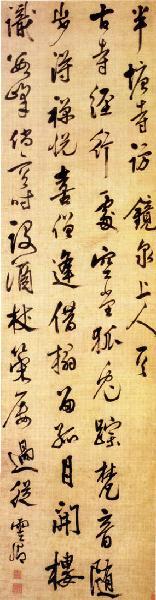 半塘寺訪鏡泉上人
古寺經行處空堂狐兔蹤梵音隨
步得禪悅喜僧逢借榻留孤月開樓
識數峰倘容時設酒杖策屢過從